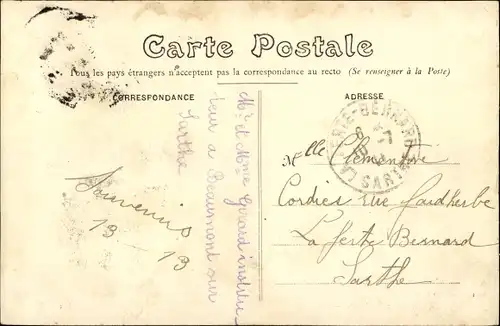 Carte Postale
Tous les pays étrangers n'acceptent pas la correspondance au recto (Se renseigner à la Poste)
CORRESPONDANCE
ADRESSE
Souvenirs
13 - 13
Mr et Mme Gerard institu
teur a Beaumont sur
Sarthe
LA FERTE-BERNARD
SARTHE
Melle Clementine
Cordier rue Faidherbe
La ferte Bernard
Sarthe